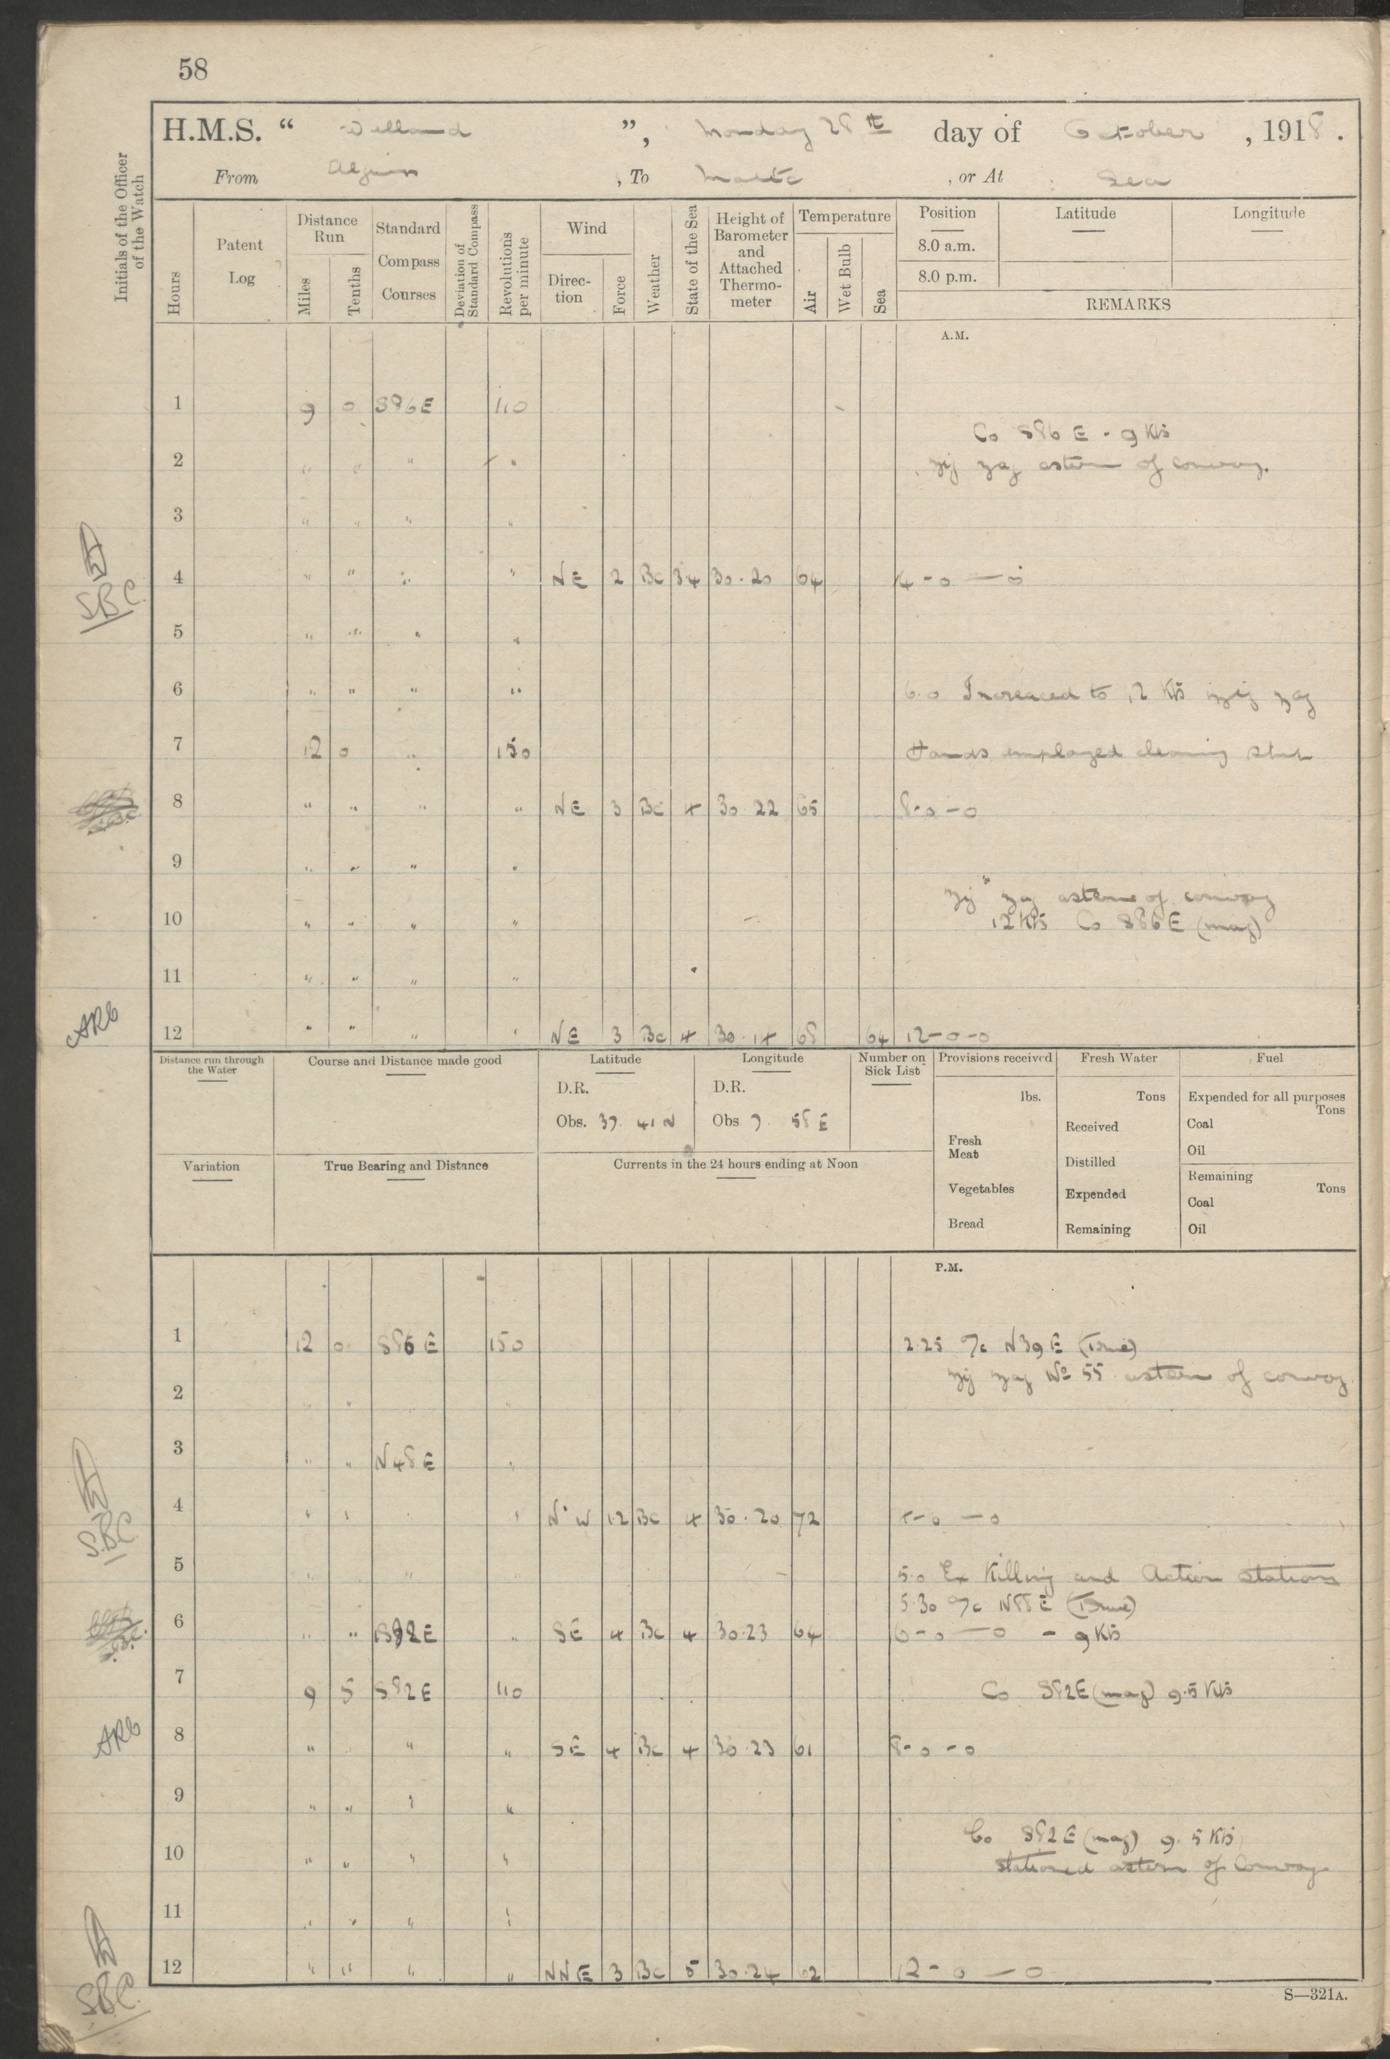 58
H.M.S. " Welland ", Monday 28th day of October, 1918.
From Algiers, To Malta, or At : Sea
Initials of the Officer of the Watch
Hours
Patent Log
Distance Run
Miles
Tenths
Standard Compass Courses
Deviation of Standard Compass
Revolutions per minute
Wind
Direction
Force
Weather
State of the Sea
Height of Barometer and Attached Thermometer
Temperature
Air
Wet Bulb
Sea
Position
Latitude
Longitude
8.0 a.m.
8.0 p.m.
REMARKS
A.M.
1 9 0 S86E 110
Co S86E - 9 Kts
2 " " " "
zig zag astern of convoy.
3 " " " "
SBC
4 " " " " NE 2 BC 34 30.20 64 4-0-0
5 " " " "
6 " " " " 6.0 Increased to 12 Kts zig zag
7 12 0 " 150 Hands employed cleaning ship
8 " " " " NE 3 BC 4 30.22 65 8-0-0
9 " " " "
zig zag astern of convoy
10 " " " " 12 Kts Co S86E (mag)
11 " " " "
ARB
12 " " " " NE 3 BC 4 30.14 68 64 12-0-0
Distance run through the Water
Course and Distance made good
Latitude
D.R.
Obs. 37. 41 N
Longitude
D.R.
Obs 7. 58 E
Number on Sick List
Provisions received
lbs.
Fresh Meat
Vegetables
Bread
Fresh Water
Tons
Received
Distilled
Expended
Remaining
Fuel
Expended for all purposes
Tons
Coal
Oil
Remaining
Tons
Coal
Oil
Variation
True Bearing and Distance
Currents in the 24 hours ending at Noon
P.M.
1 12 0 S86E 150 2.25 A/c N39E (True)
zig zag No 55 astern of convoy
2 " " "
3 " " N48E "
SBC
4 " " " N'W 12 BC 4 30.20 72 4-0-0
5 " " 5.0 Ex Killing and Action Stations
5.30 A/c N88E (True)
6 " " S82E " SE 4 BC 4 30.23 64 6-0-0 - 9 Kts
7 9 5 S82E 110 Co S82E (mag) 9.5 Kts
ARB
8 " " " SE 4 BC 4 30.23 61 8-0-0
9 " " " "
Co S82E (mag) 9.5 Kts
10 " " " " stationed astern of Convoy
11 " " " "
12 " " " " NNE 3 BC 5 30.24 62 12-0-0
SBC
S—321A.